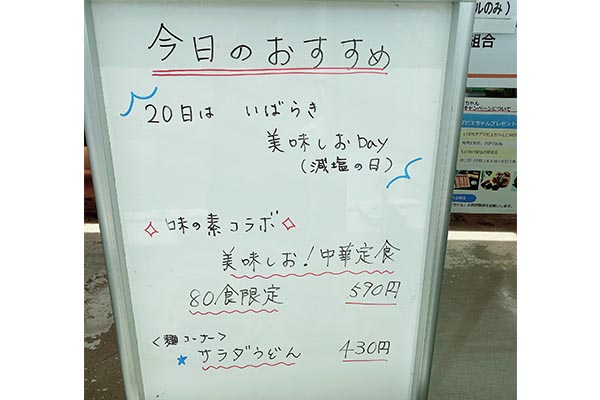 今日のおすすめ
20日は いばらき
美味しおDay
(減塩の日)
味の素コラボ
美味しお!中華定食
80食限定 590円
<麺コーナー>
★ サラダうどん 430円
ルのみ)
組合
キャンペーンについて
アピエちゃんプレゼント